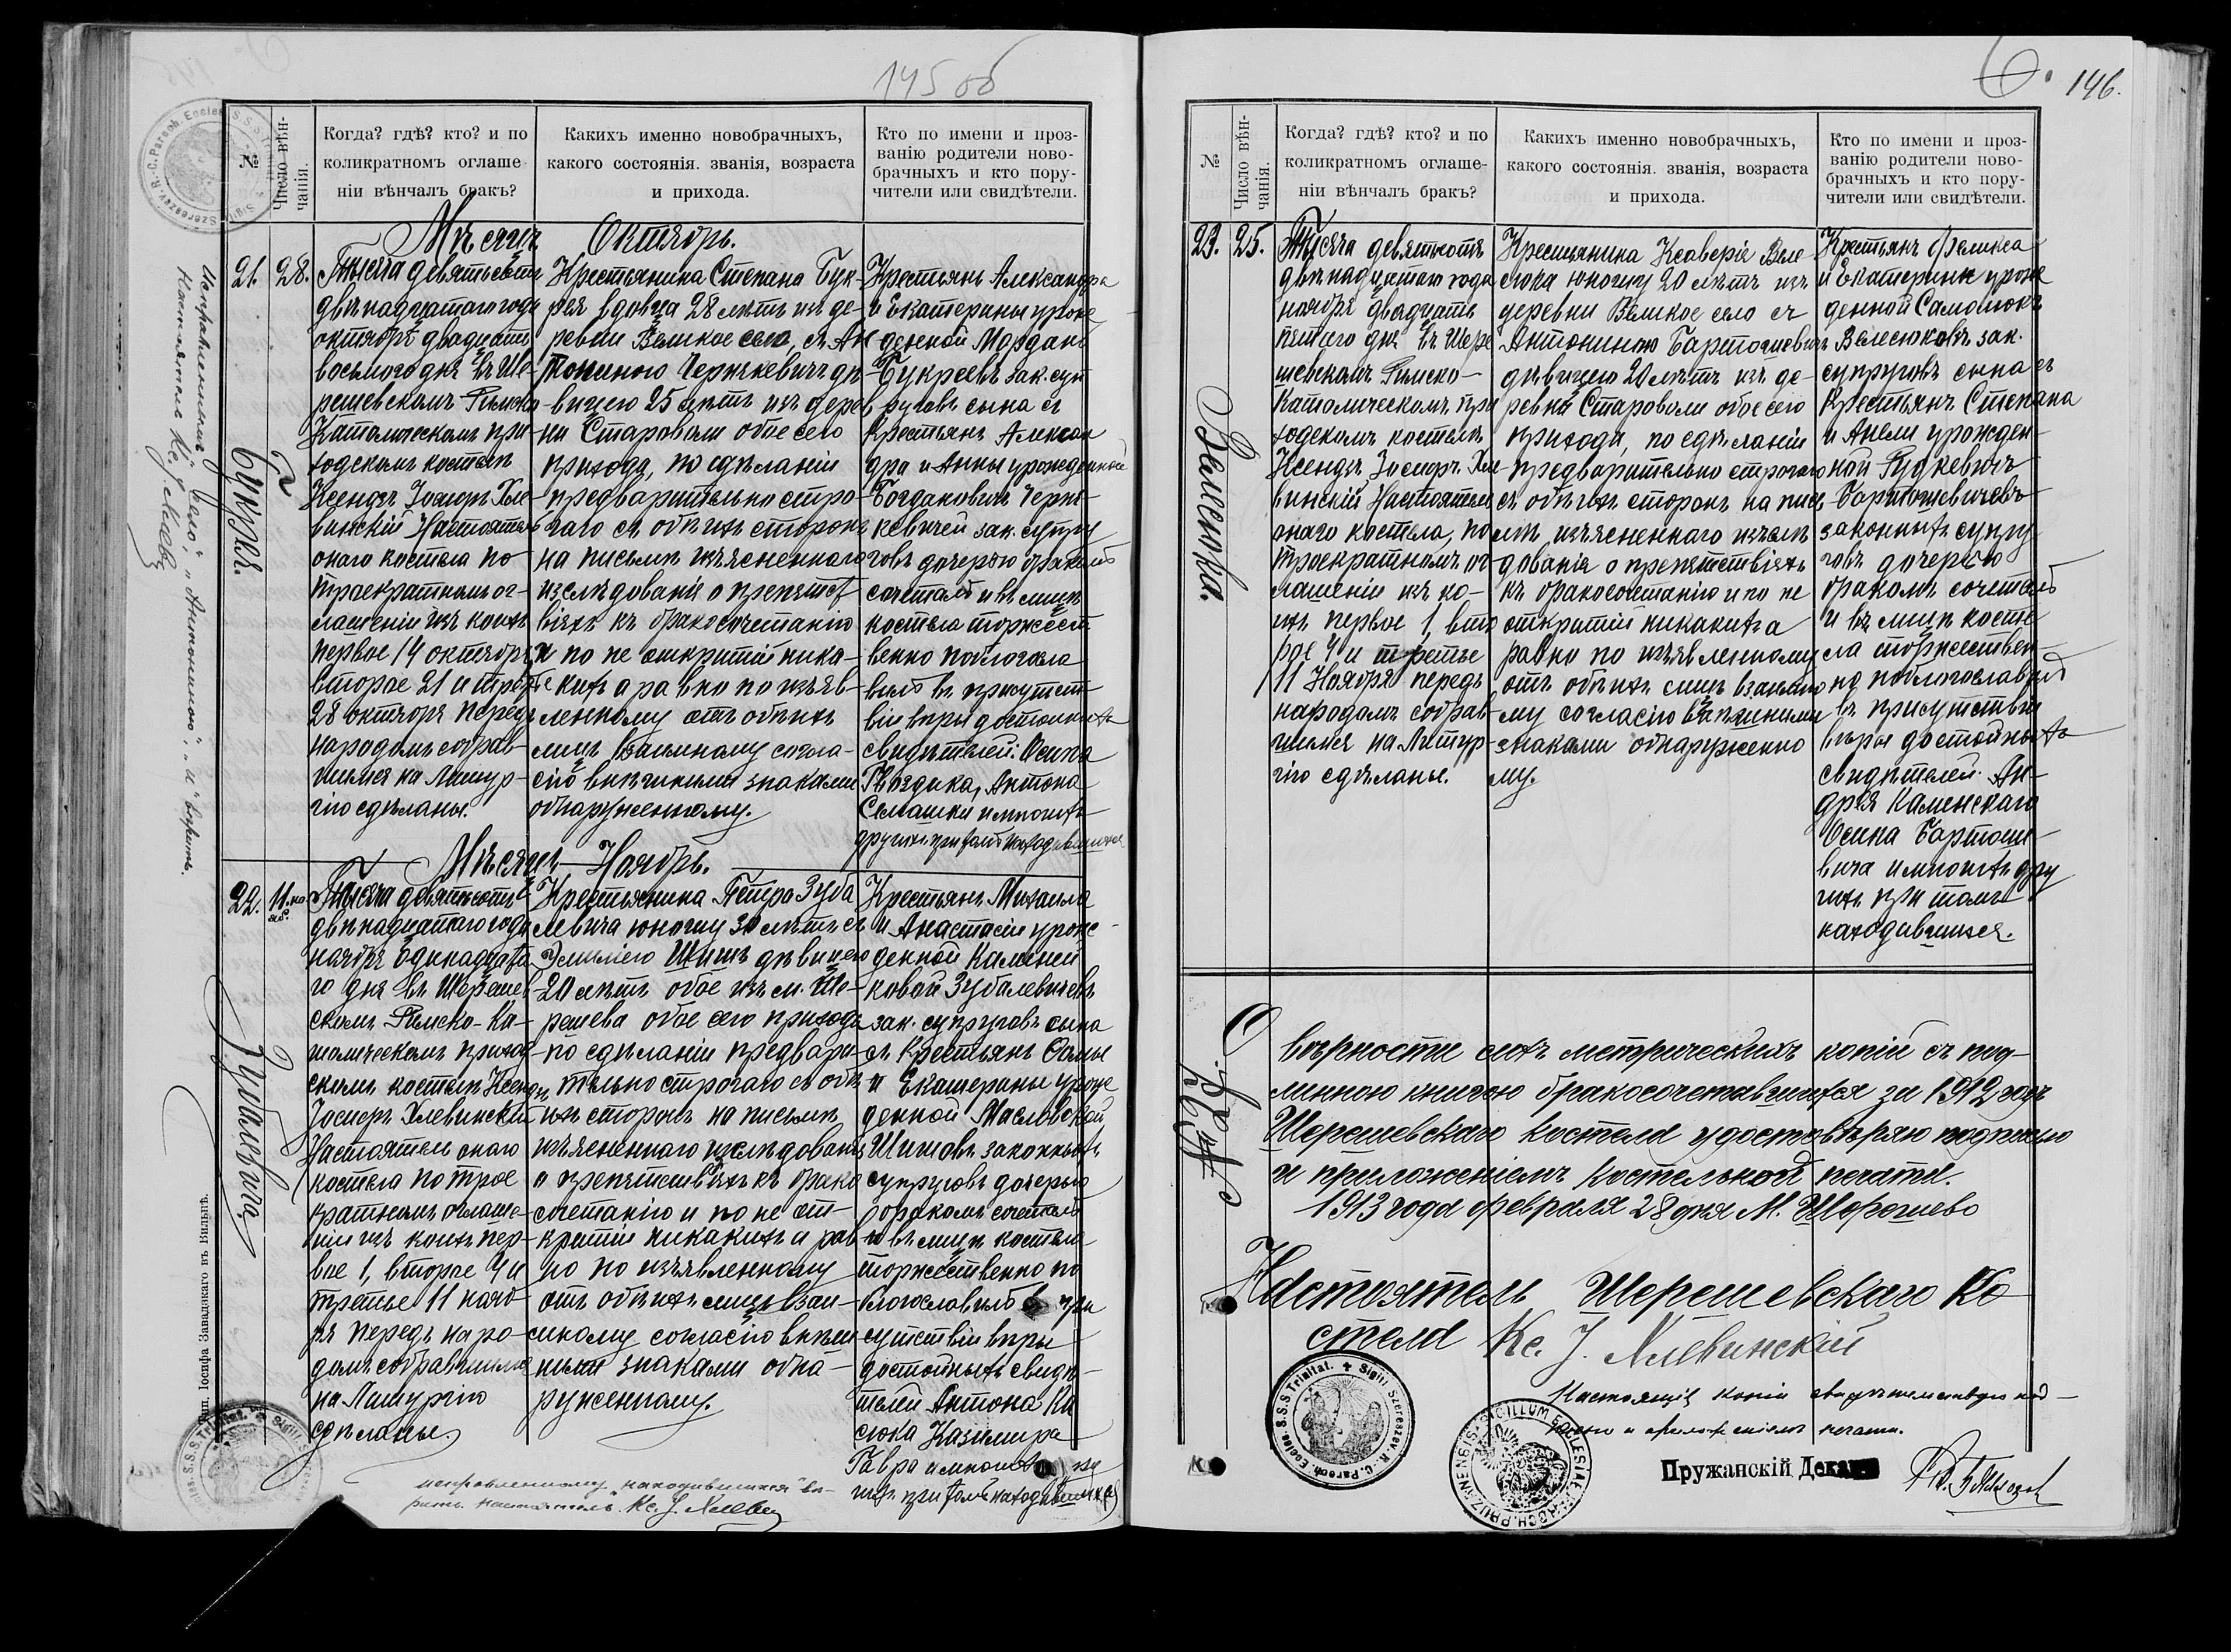 145 об
№
Число вѣн-
чанія.
Когда? гдѣ? кто? и по
коликратномъ оглаше
ніи вѣнчалъ бракъ?
Какихъ именно новобрачныхъ,
какого состоянія. званія, возраста
и прихода.
Кто по имени и проз-
ванію родители ново-
брачныхъ и кто пору-
чители или свидѣтели.
Мѣсяцъ Октябрь.
21.
28.
Букрея.
Тысяча девятьсотъ
двѣнадцатаго года
октября двадцать
восьмого дня въ Ше-
решевскомъ Римско-
Католическомъ при
ходскомъ костелѣ
Ксендзъ Іосифъ Хле
винскій Настоятель
онаго костела по
троекратномъ ог-
лашеніи изъ коихъ
первое 14 октября
второе 21 и третье
28 октября передъ
народомъ собрав-
шимся на Литур-
гію сдѣланы.
Крестьянина Степана Бук-
рея вдовца 28 лѣтъ изъ де-
ревни Великое село, съ Ан
тониною Чернкевичъ дѣ-
вицею 25 лѣтъ изъ дерев
ни Староволи обое сего
прихода, по сдѣланіи
предварительно стро-
гаго съ обѣихъ сторонъ
на письмѣ изъясненнаго
изслѣдованія о препятст
віяхъ къ бракосочетанію
и по не открытіи ника-
кихъ а равно по изъяв-
ленному отъ обѣихъ
лицъ взаимному согла-
сію внѣшними знаками
обнаруженному.
Крестьянъ Александра
и Екатерины урож
денной Мордань
Букреевъ зак. суп
руговъ сына съ
крестьянъ Алексан
дра и Анны урожденной
Богдановичъ Черн-
кевичей зак. супру
говъ дочерью бракомъ
сочеталъ и въ лицѣ
костела торжест
венно поблагосла
вилъ въ присутст-
віи вѣры достойныхъ
свидѣтелей: Осипа
Гвоздика, Антона
Семашки и многихъ
другихъ при томъ находившихся
Мѣсяцъ Ноябрь.
22.
11. но
яб.
Зубалевича.
Тысяча девятьсотъ
двѣнадцатаго года
ноября одинадцата
го дня въ Шереше
скомъ Римско-Ка-
толическомъ приход
скомъ костелѣ Ксендзъ
Іосифъ Хлевинскій
Настоятель онаго
костела по трое
кратномъ оглаше-
ніи изъ коихъ пер-
вое 1, второе 4 и
третье 11 нояб-
ря передъ наро-
домъ собравшимся
на Литургію
сдѣланы
Крестьянина Петра Зуба
левича юношу 30 лѣтъ съ
Эмиліею Шишъ дѣвицею
20 лѣтъ обое изъ м. Ше-
решева обое сего прихода
по сдѣланіи предвари-
тельно строгаго съ обѣ
ихъ сторонъ на письмѣ
изъясненнаго изслѣдованія
о препятствіяхъ къ брако
сочетанію и по не от-
крытіи никакихъ а рав
но по изъявленному
отъ обѣихъ лицъ взаи-
мному согласію внѣш
ными знаками обна-
руженному.
Крестьянъ Михаила
и Анастасіи урож-
денной Каленни
ковой Зубалевичевъ
зак. супруговъ сына
съ Крестьянъ Фомы
и Екатерины урож
денной Масловской
Шишовъ законныхъ
супруговъ дочерью
бракомъ сочеталъ
и въ лицѣ костела
торжественно по
благословилъ въ при
сутствіи вѣры
достойныхъ свидѣ-
телей Антона Ка
сюка Казимира
Гавра и многихъ
гихъ при томъ находившихся
Исправленнымъ „село," „Антониною", „и" вѣрить.
Настоятель Кс. J. Хлевин
исправленному „находившихся" вѣ-
рить. Настоятель Кс. J. Хлевин
Тип. Іосифа Завадзкаго въ Вильнѣ.
146.
№
Число вѣн-
чанія.
Когда? гдѣ? кто? и по
коликратномъ оглаше-
ніи вѣнчалъ бракъ?
Какихъ именно новобрачныхъ,
какого состоянія. званія, возраста
и прихода.
Кто по имени и проз-
ванію родители ново-
брачныхъ и кто пору-
чители или свидѣтели.
23.
25.
Велесюка.
Тысяча девятьсотъ
двѣнадцатаго года
ноября двадцать
пятаго дня въ Шере
шевскомъ Римско-
Католическомъ при
ходскомъ костелѣ
Ксендзъ Іосифъ Хле-
винскій Настоятель
онаго костела, по
троекратномъ ог-
лашеніи изъ ко-
ихъ первое 1, вто
рое 4 и третье
11 Ноября передъ
народомъ собрав-
шимся на Литур-
гію сдѣланы.
Крестьянина Ксаверія Веле
сюка юношу 20 лѣтъ изъ
деревни Великое село съ
Антониною Бартошевичъ
дѣвицею 20 лѣтъ изъ де-
ревни Староволи обое сего
прихода, по сдѣланіи
предварительно строгаго
съ обѣихъ сторонъ на пись
мѣ изъясненнаго изслѣ
дованія о препятствіяхъ
къ бракосочетанію и по не
открытіи никакихъ а
равно по изъявленному
отъ обѣихъ лицъ взаимно
му согласію внѣшними
знаками обнаруженно
му.
Крестьянъ Феликса
и Екатерины урож
денной Самолюкъ
Велесюковъ зак.
супруговъ сына съ
Крестьянъ Степана
и Анели урожден-
ной Рудкевичъ
Бартошевичевъ
законныхъ супру
говъ дочерью
бракомъ сочеталъ
и въ лицѣ косте
ла торжествен
но поблагославилъ
въ присутствіи
вѣры достойныхъ
свидѣтелей: Ан-
дрея Каменскаго
Осипа Бартоше-
вича и многихъ дру
гихъ при томъ
находившихся.
О вѣрности сихъ метрическихъ копій съ под-
линною книгою бракосочетавшихся за 1912 годъ
Шерешевскаго костела удостовѣряю подписью
и приложеніемъ костельной печати.
1913 года февраля 28 дня М. Шерешево
Настоятель Шерешевскаго Ко
стела Кс. J. Хлевинскій
Настоящія копіи свидѣтельствую под-
писью и приложеніемъ печати.
Пружанскій Декан